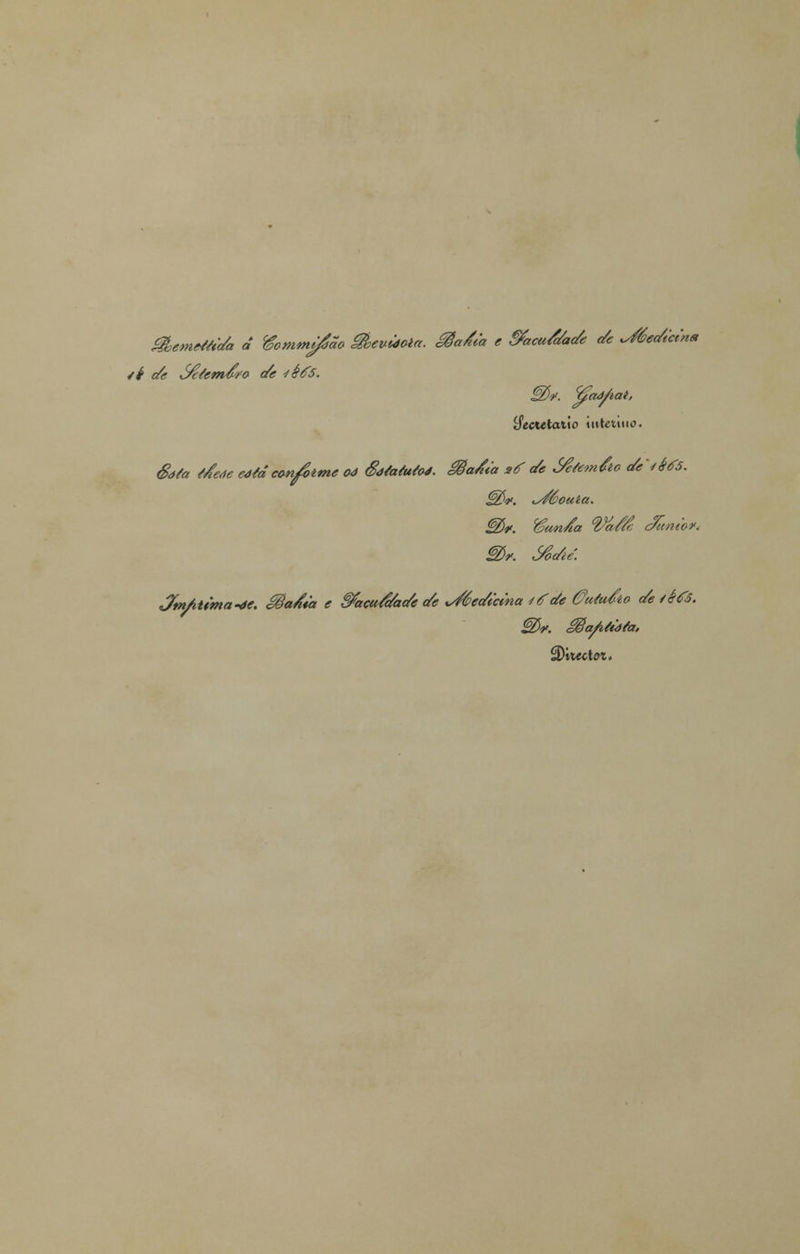 Remettida á Commissão Revisora. Bahia e Faculdade de Medicina
18 de Setembro de 1865.
Dr. Gaspar,
Secretario interino.
Esta these está conforme os Estatutos. Bahia 26 de Setembro de 1865.
Dr. Moura.
Dr. Cunha Valle Junior.
Dr. Sodré.
Imprima-se. Bahia e Faculdade de Medicina 16 de Outubro de 1865.
Dr. Baptista,
Director.